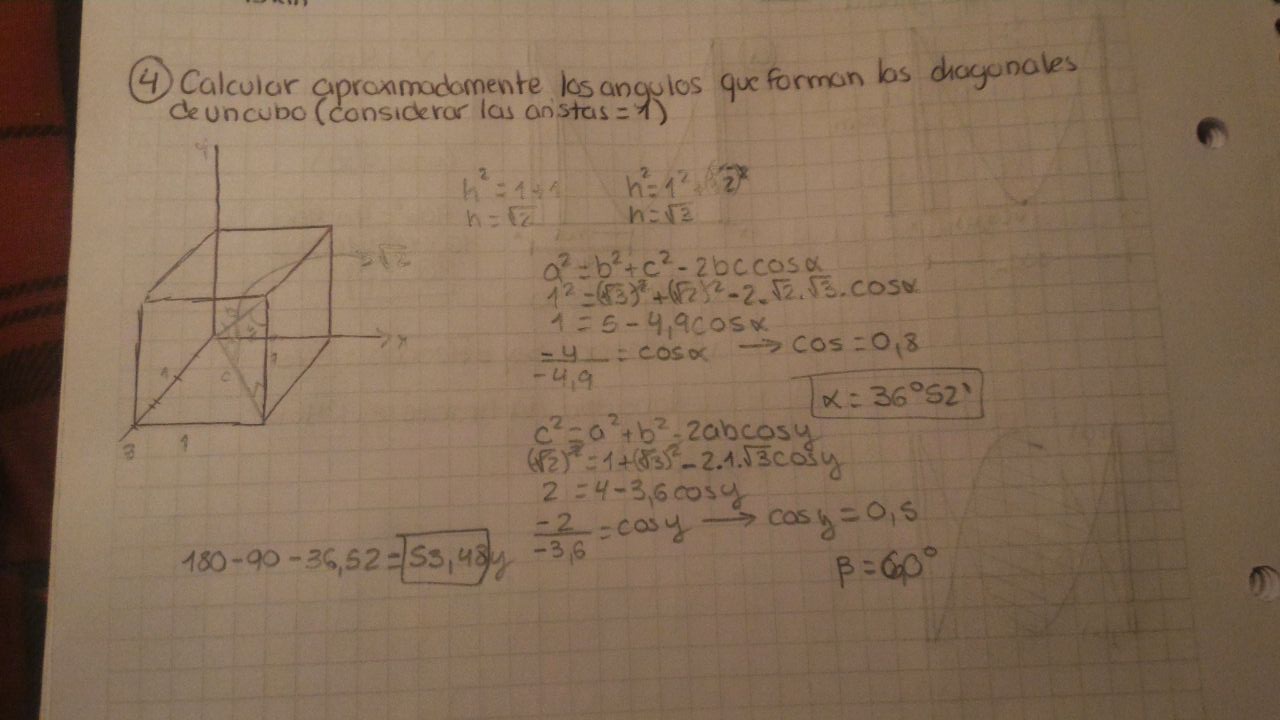 ④ Calcular aproximadamente los angulos que forman las diagonales
de un cubo (considerar las aristas = 1)
y
h² = 1+1
h = √2
h² = 1² + (√2)²
h = √3
= √2
x
1
c
1
1
3
a² = b² + c² - 2bc cosα
1² = (√3)² + (√2)² - 2.√2.√3.cosα
1 = 5 - 4,9cosα
-4/-4,9 = cosα → cos = 0,8
α = 36°52'
c² = a² + b² - 2abcosy
(√2)² = 1 + (√3)² - 2.1.√3cosy
2 = 4 - 3,6cosy
-2/-3,6 = cosy → cosy = 0,5
180 - 90 - 36,52 = 53,48 y
β = 60°